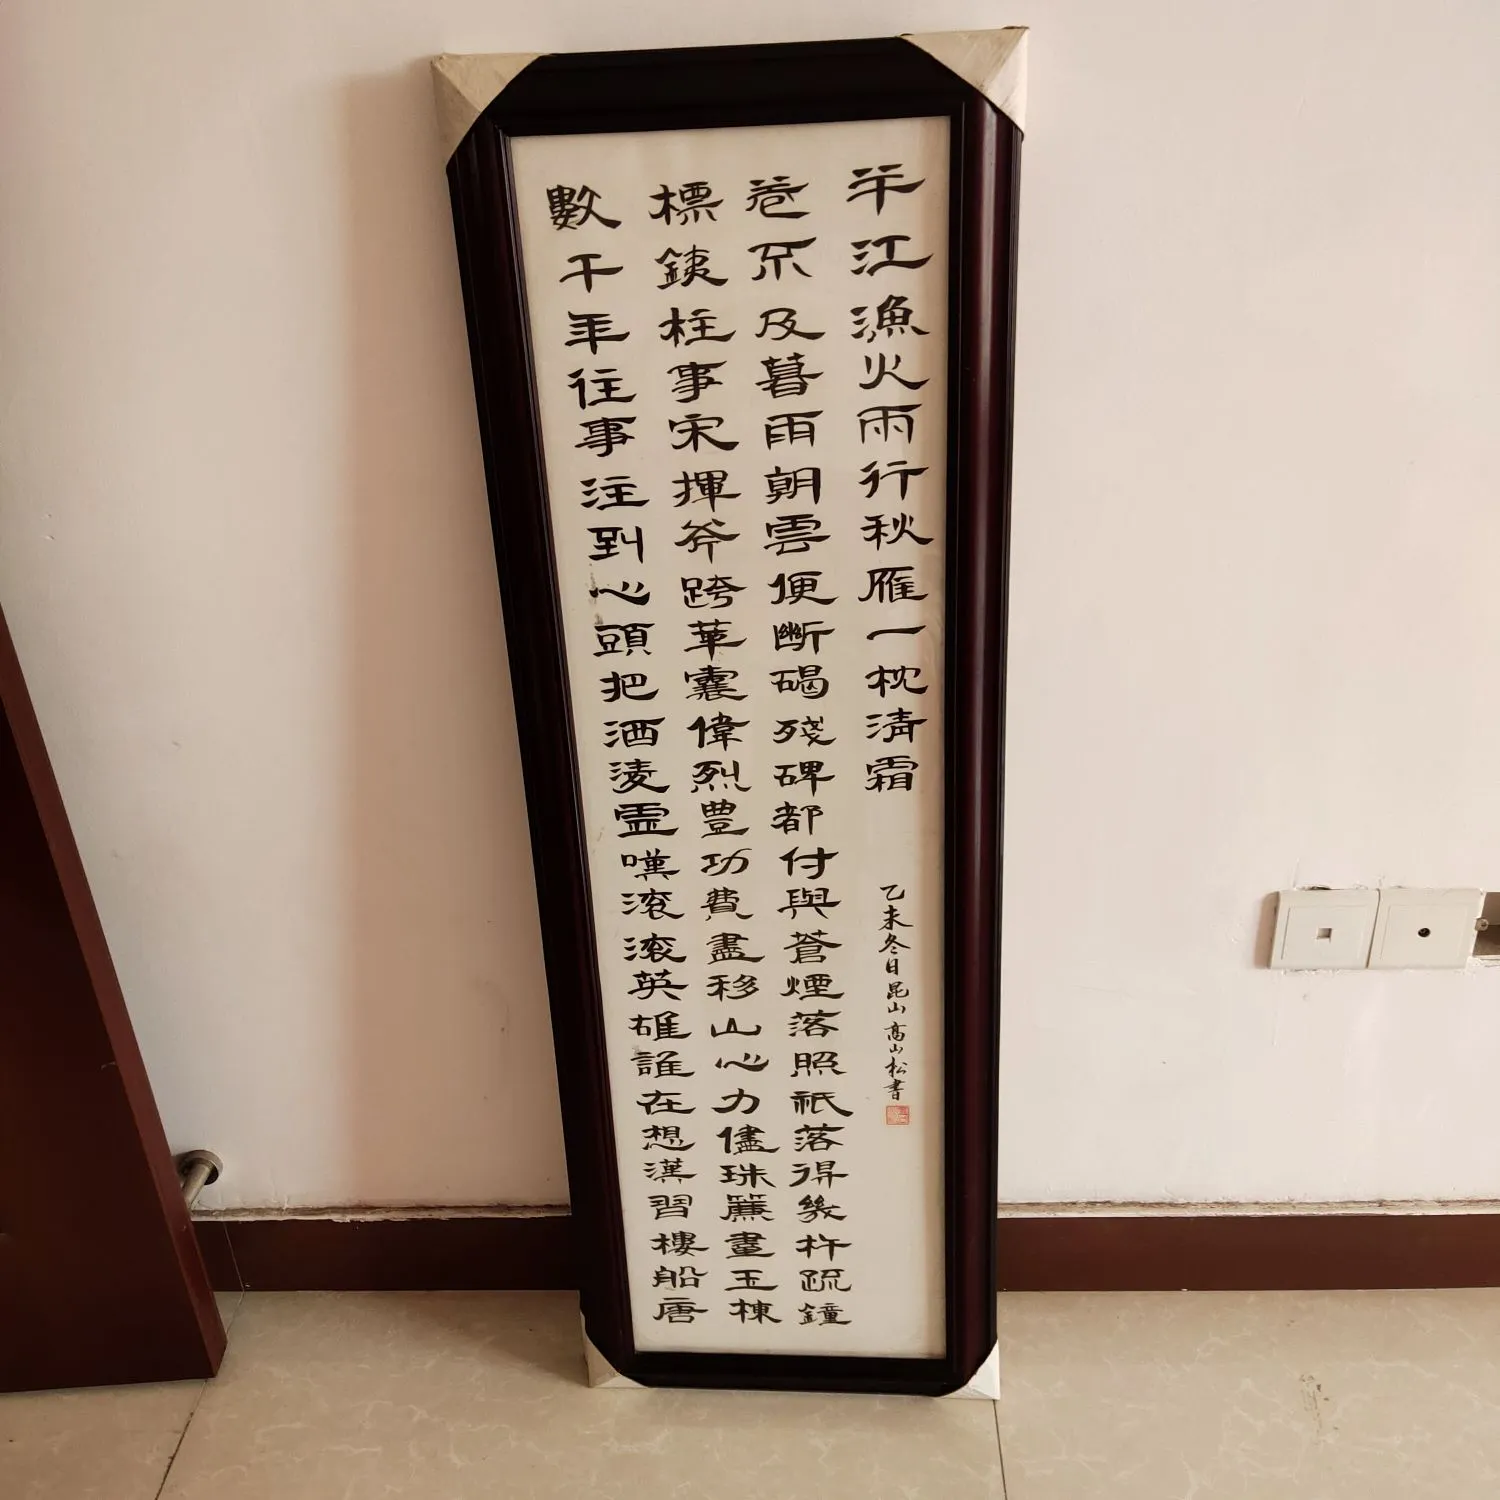 數千年往事注到心頭把酒淩虛嘆滾滾英雄誰在想漢習樓船唐
標銕柱事宋揮斧跨革囊偉烈豐功費盡移山心力儘珠簾畫玉棟
卷不及暮雨朝雲便斷碣殘碑都付與蒼煙落照祇落得幾杵疏鐘
半江漁火兩行秋雁一枕清霜
乙未冬日昆山高山松書